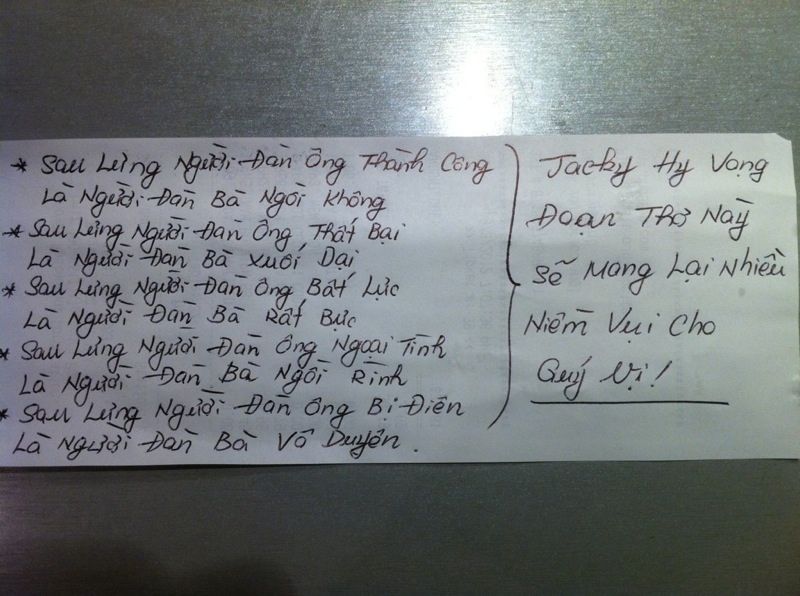 * Sau Lưng Người Đàn Ông Thành Công
Là Người Đàn Bà Ngồi Không
* Sau Lưng Người Đàn Ông Thất Bại
Là Người Đàn Bà Xuối Dại
* Sau Lưng Người Đàn Ông Bất Lực
Là Người Đàn Bà Rất Bực
* Sau Lưng Người Đàn Ông Ngoại Tình
Là Người Đàn Bà Ngồi Rình
* Sau Lưng Người Đàn Ông Bị Điên
Là Người Đàn Bà Vô Duyên.
Jacky Hy Vọng
Đoạn Thơ Này
Sẽ Mang Lại Nhiều
Niềm Vui Cho
Quý Vị!